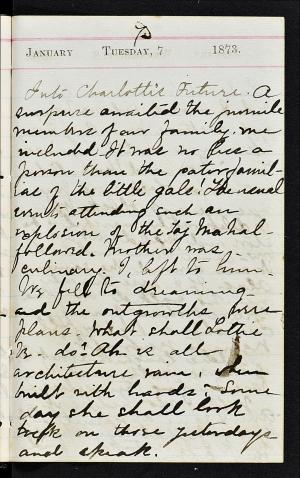 7
January Tuesday, 7 1873.
Into Charlotte's Future. A
surprise awaited the juvenile
members of our family. me
included. It was no less a
person than the pater famil-
ias of the little gals! The usual
events attending such an
explosion of the Taj Mahal
followed. Mother was
culinary. I, left to him.
We fell to dreaming
and the outgrowths were
plans. What shall Lottie
B. do? Ah is all
architecture vain, when
built with hands. Some
day she shall look
back on those yesterdays
and speak.